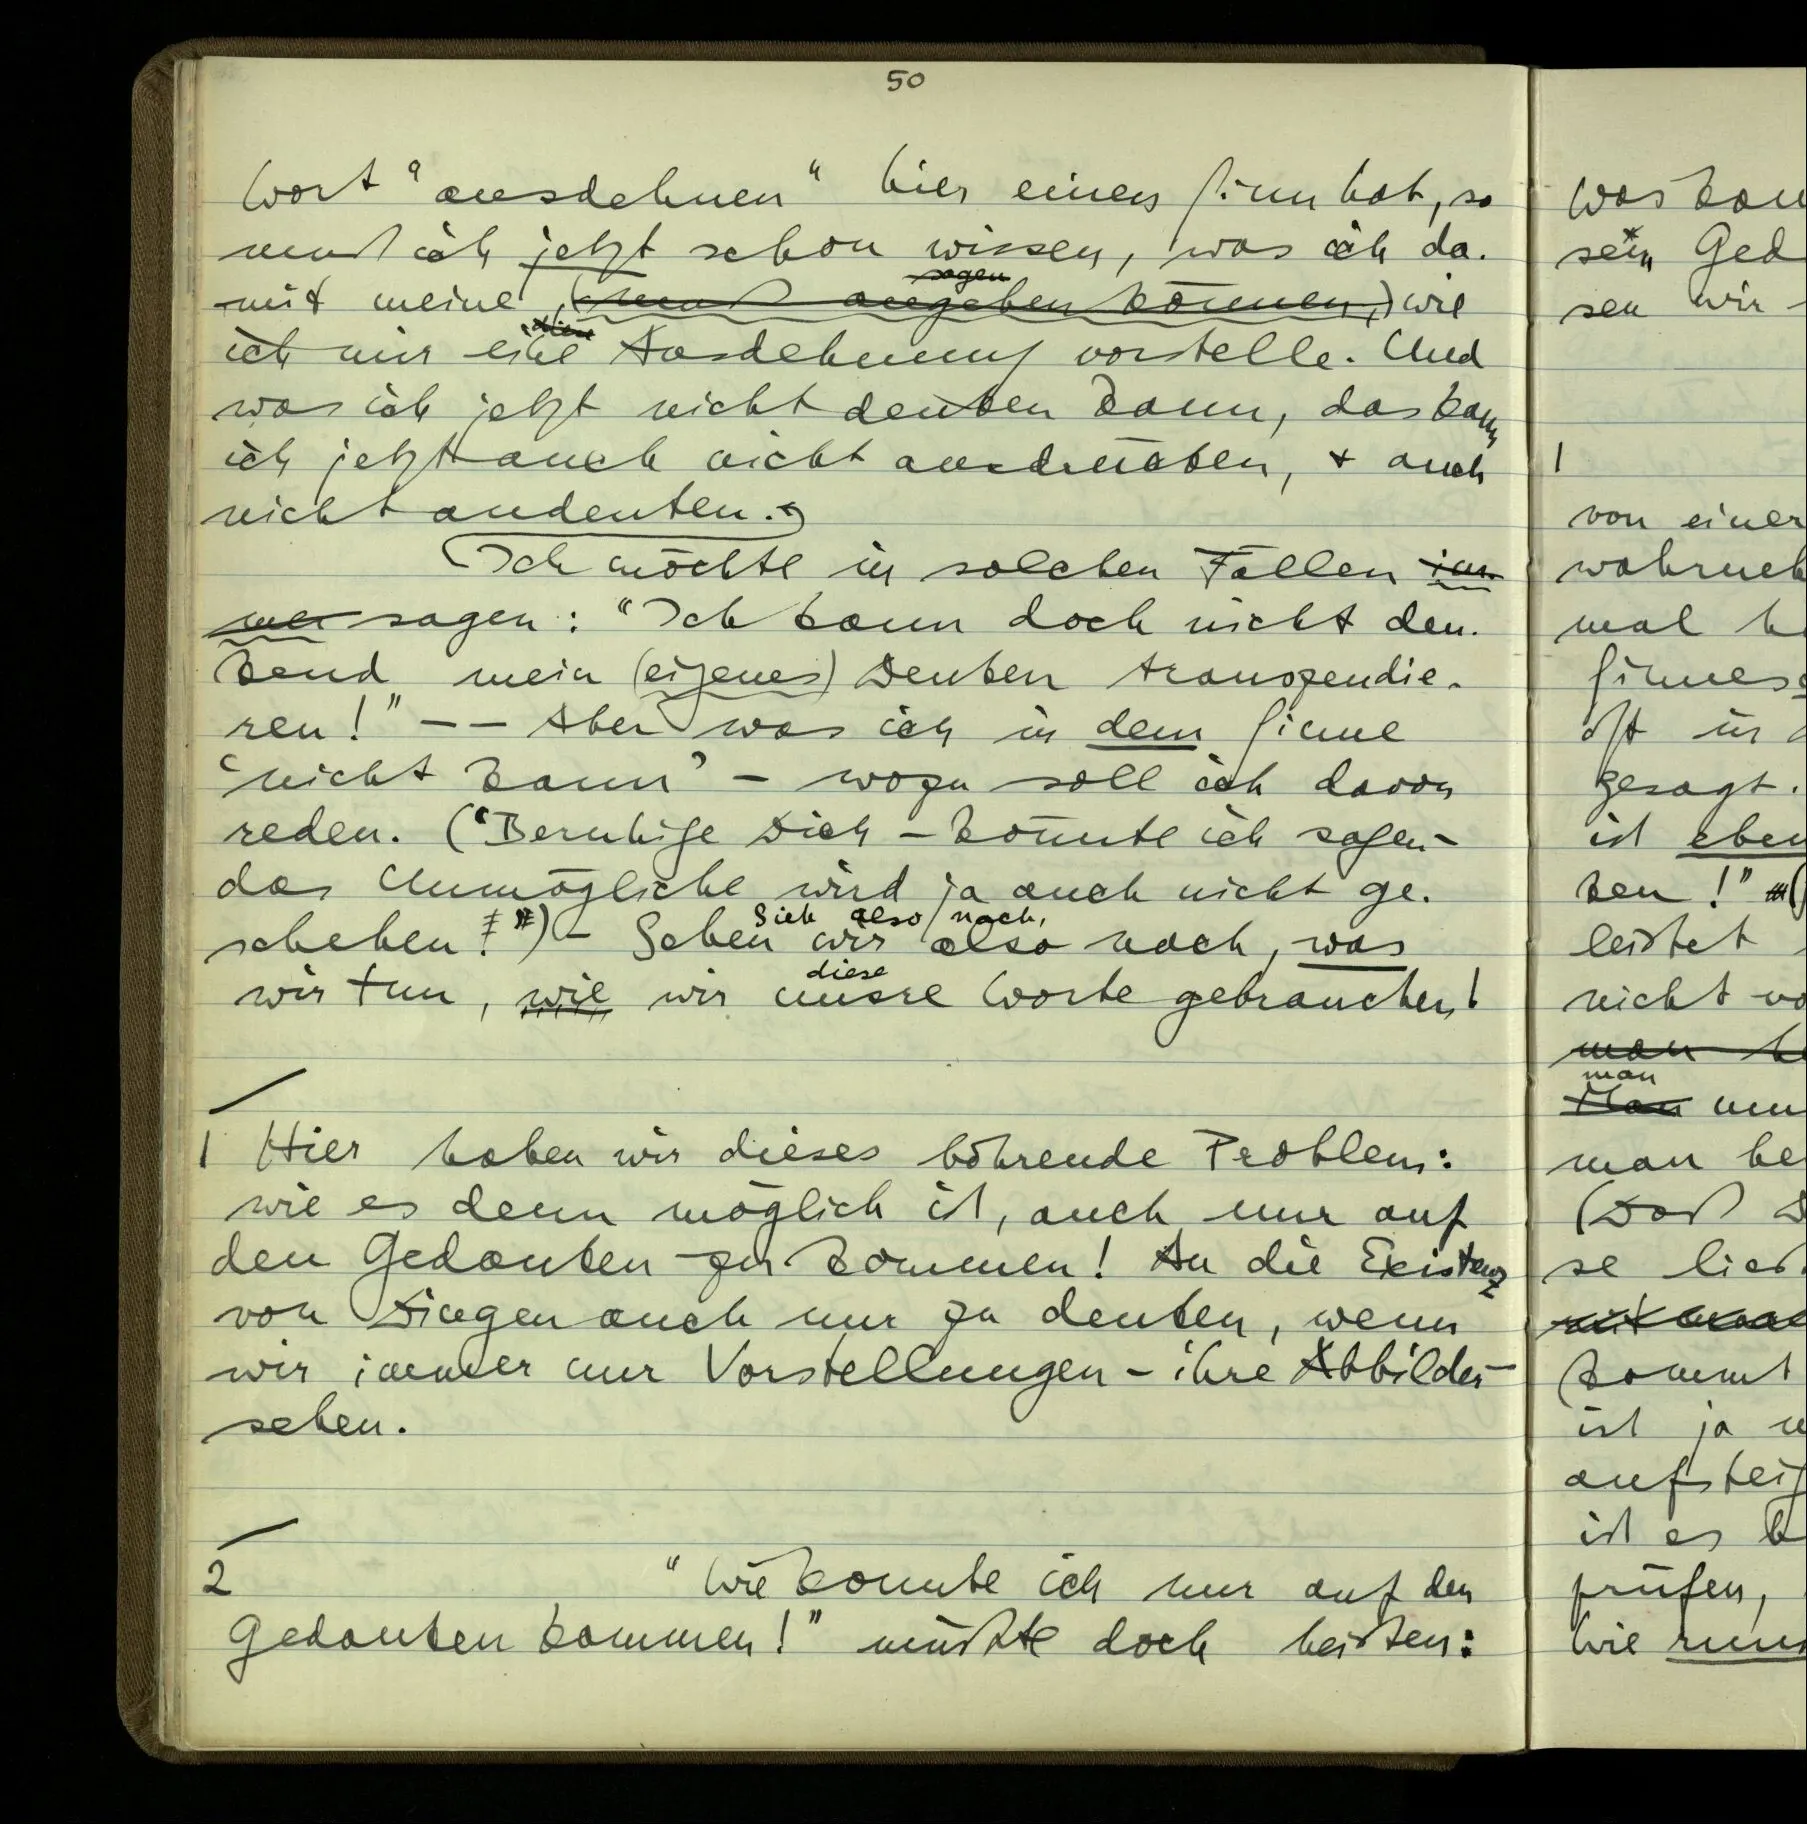 50
Wort "ausdehnen" hier einen Sinn hat, so
muß ich jetzt schon wissen, was ich da-
sagen
mit meine (muß angeben können,) wie
diese
ich mir eine Ausdehnung vorstelle. Und
was ich jetzt nicht denken kann, das kann
ich jetzt auch nicht ausdrücken, + auch
nicht andeuten.
Ich möchte in solchen Fällen im-
mer sagen: "Ich kann doch nicht den-
kend mein (eigenes) Denken transzendie-
ren!" – – Aber was ich in dem Sinne
'nicht kann' – wozu soll ich davon
reden. ("Beruhige Dich – könnte ich sagen –
das Unmögliche wird ja auch nicht ge-
schehen!") – Sehen wir also nach, was
Sieh also nach,
diese
wir tun, wie wir unsre Worte gebrauchen!
1 Hier haben wir dieses bohrende Problem:
wie es denn möglich ist, auch nur auf
den Gedanken zu kommen! An die Existenz
von Dingen auch nur zu denken, wenn
wir immer nur Vorstellungen – ihre Abbilder –
sehen.
2 "Wie konnte ich nur auf den
Gedanken kommen!" müßte doch heißen:
Was
sein
sen wir
1
von einer
mal
oft in
gesagt.
ist eben
ken!"
leistet
nicht
man
man
Man
man
(Daß
se
kommt
ist ja
ist es
prüfen,
Wie